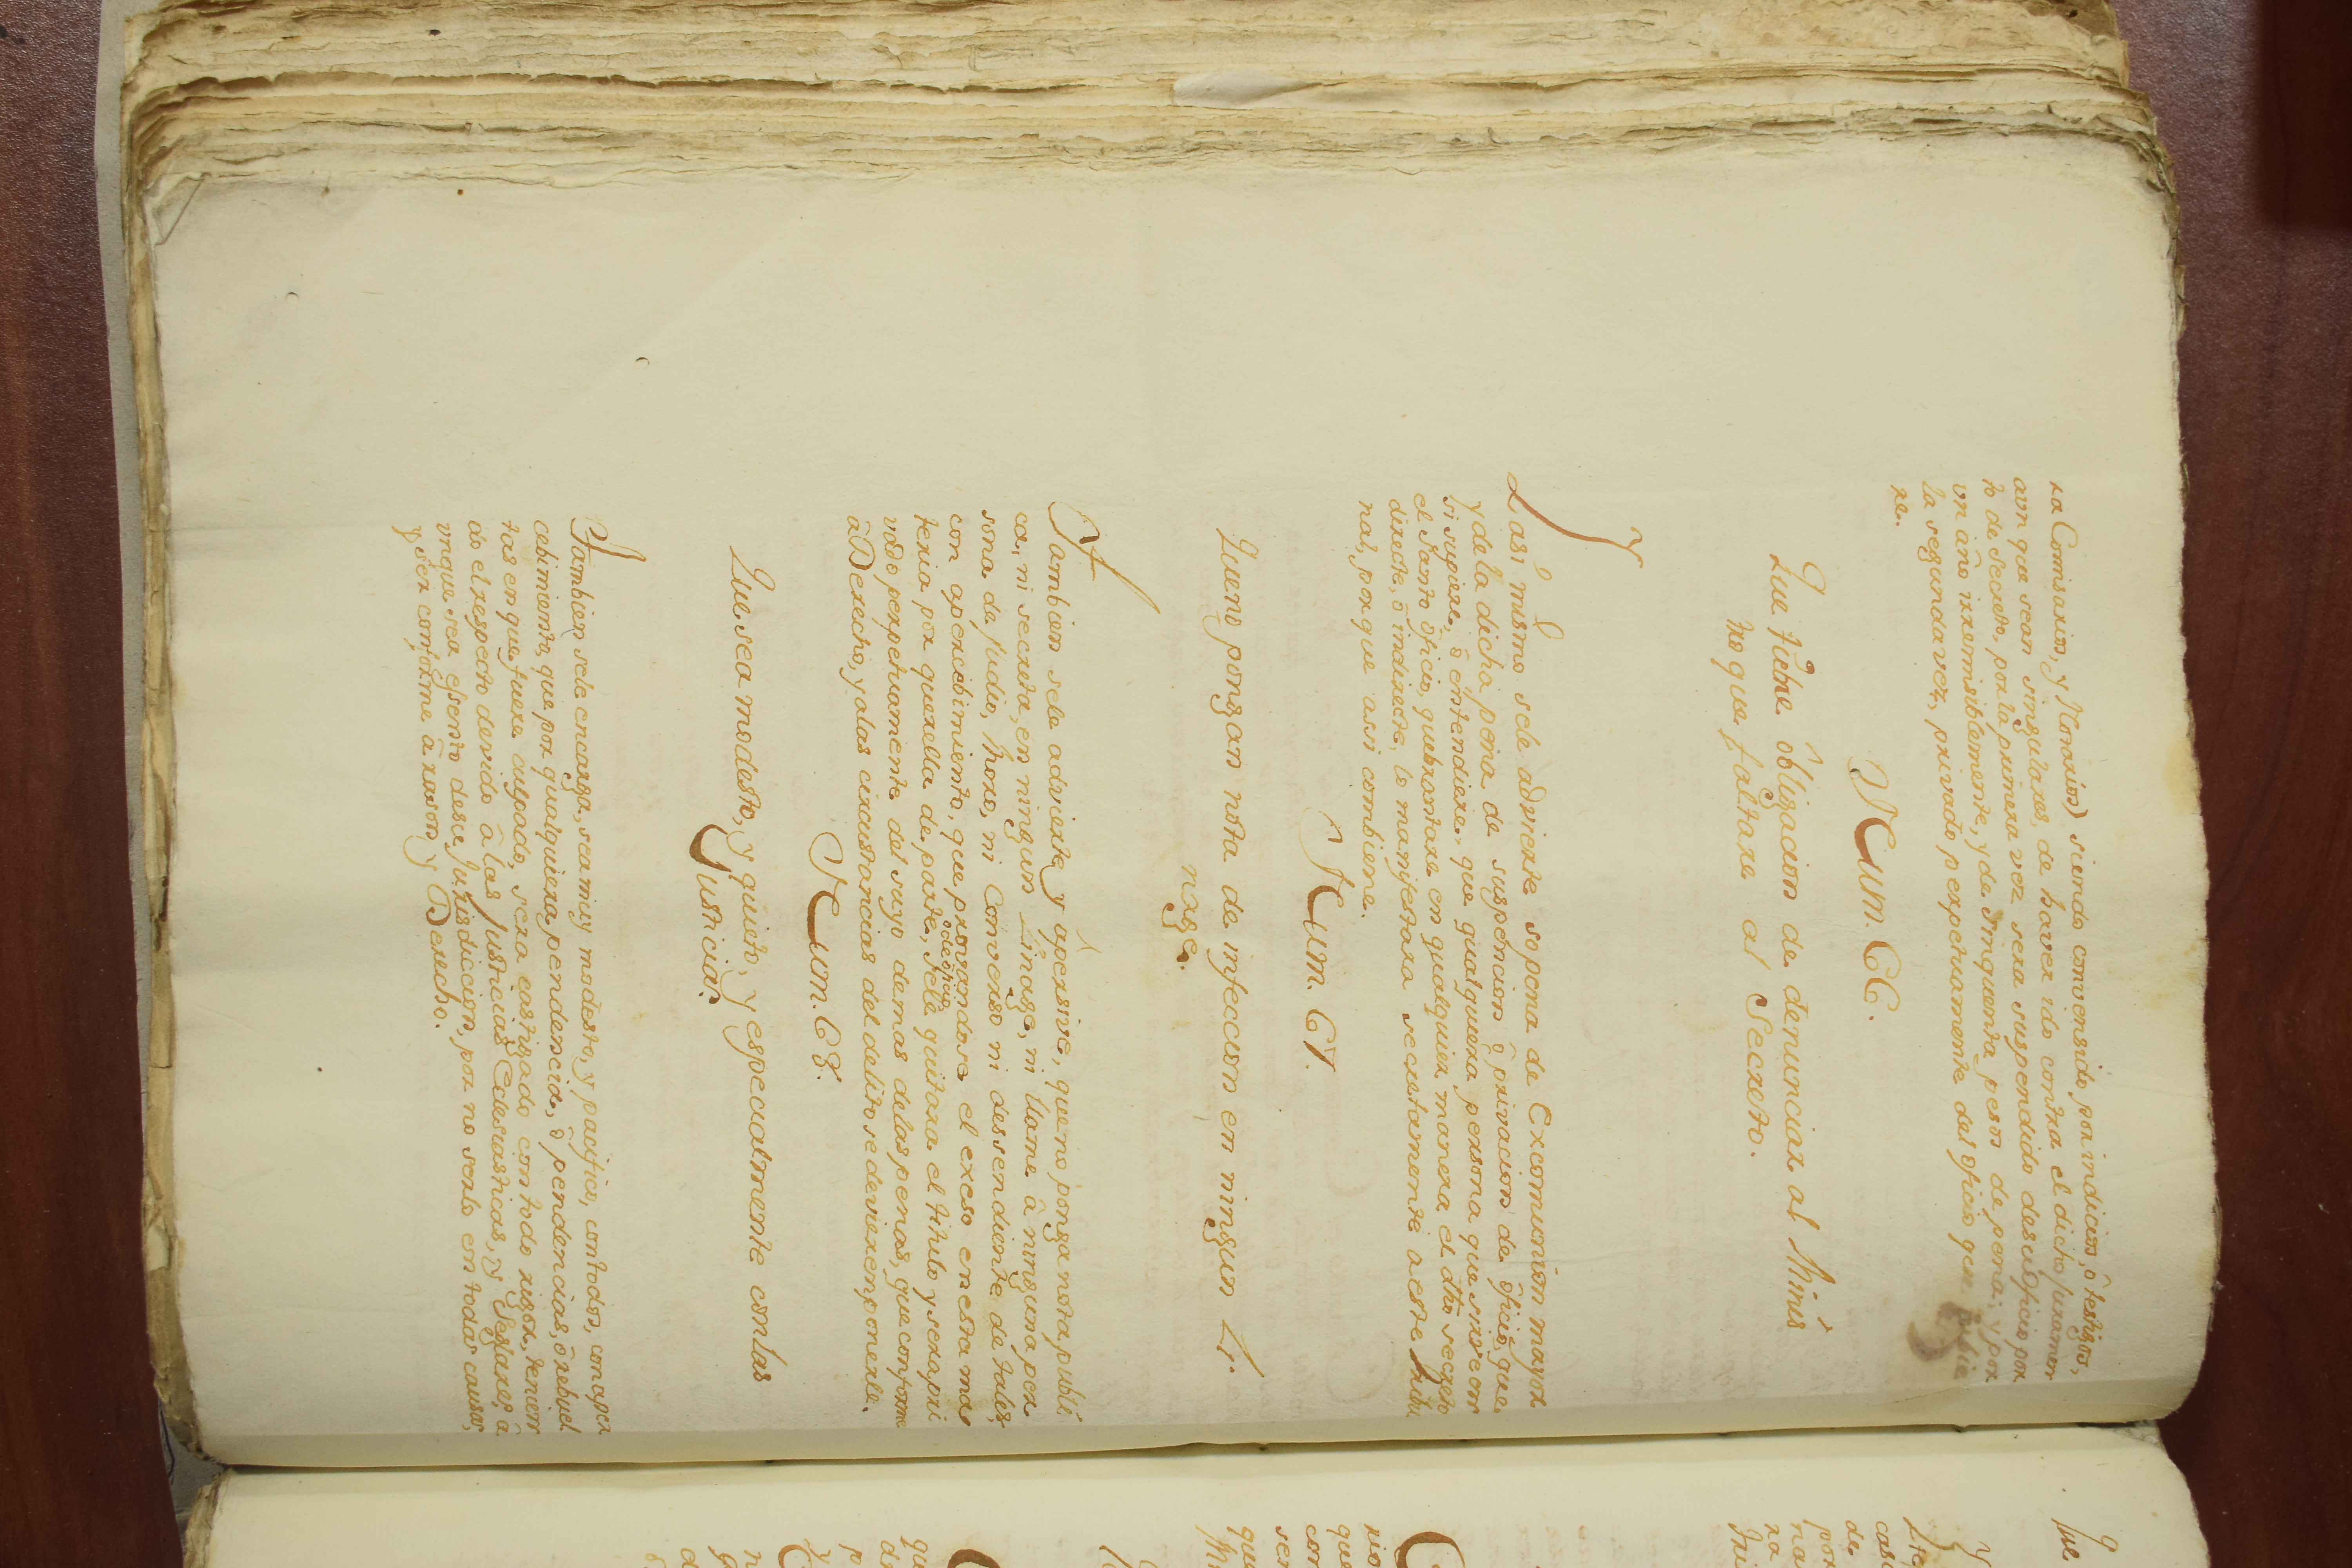 ra Comisarios, y Notarios) siendo convensido por indicios, ô testigos,
aun que sean singulares, de haver ido contra el dicho juramen
to de secreto, por la primera vez sera suspendido desu oficio por
un año irremisiblemente, y de sinquenta pesos de pena; y por
la segunda vez, privado perpetuamente del oficio, que
re.
Num. 66.
Que tiene obligacion de denunciar al Minis
tro que faltare al Secreto.
Y
Y asi mismo sele advierte so pena de Excomunion mayor
y de la dicha pena de suspencion ô privacion de oficio, que
si supiere, ô entendiere, que qualquiera persona que sirve en
el Santo oficio, quebrantare en qualquier manera el dho secreto
directe, ô indirecte, lo manifestara secretamente a este Tribu
nal, porque assi combiene.
Num. 67.
Que no pongan nota de infeccion en ningun Li
nage.
Tambien sele advierte, y apersive, que no ponga nota publi
ca, ni secreta, en ningun Linage, ni llame â ninguna per
sona de judio, moro, ni converso ni dessendiente de tales,
con apercebimiento, que provandose el exceso en esta ma
teria por querella de parte, ô de oficio, sele quitara el titulo y sera pri
vado perpetuamente del suyo demas delas penas, que conforme
â Derecho, y alas circustancias del delito se devieren ponerle.
Num. 68.
Que sea modesto, y quieto, y especialmente con las
Justicias.
Tambien sele encarga, sea muy modesto, y pacifico, con todos, con aper
cebimiento, que por qualquiera pendencia, ô pendencias, ô rebuel
tas en que fuere culpado, sera castigado con todo rigor, tenien
do el respecto devido â las Justicias Eclesiasticas, y Seglares, â
unque sea essento desu Jurisdiccion, por no serlo en todas causas,
y ser conforme â rason y Derecho.
Que